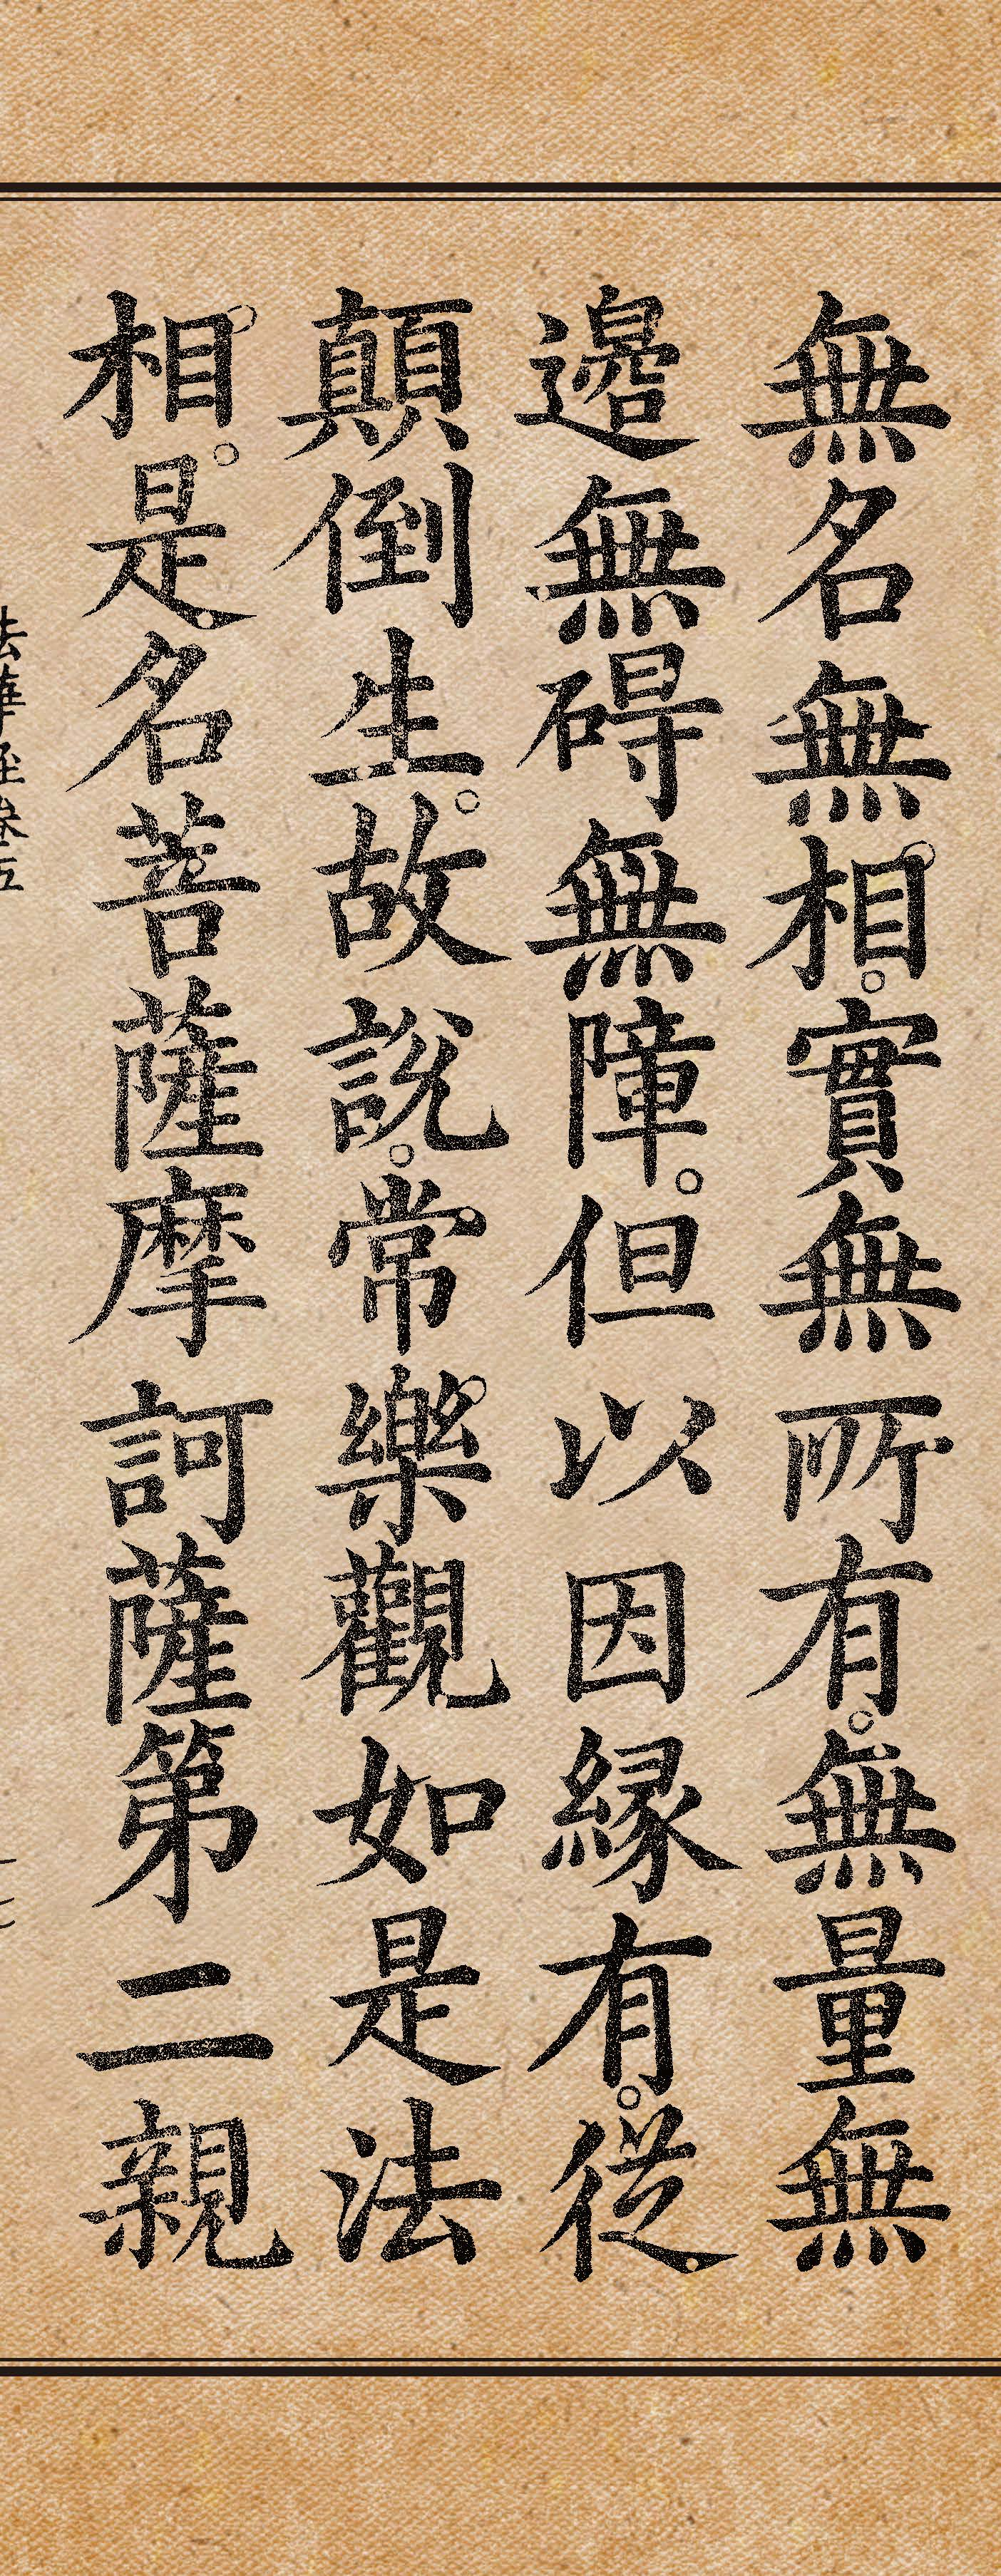 無名無相。實無所有。無量無
邊無碍無障。但以因縁有。從
顛倒生。故說。常樂觀如是法
相。是名菩薩摩訶薩第二親
法華經卷五